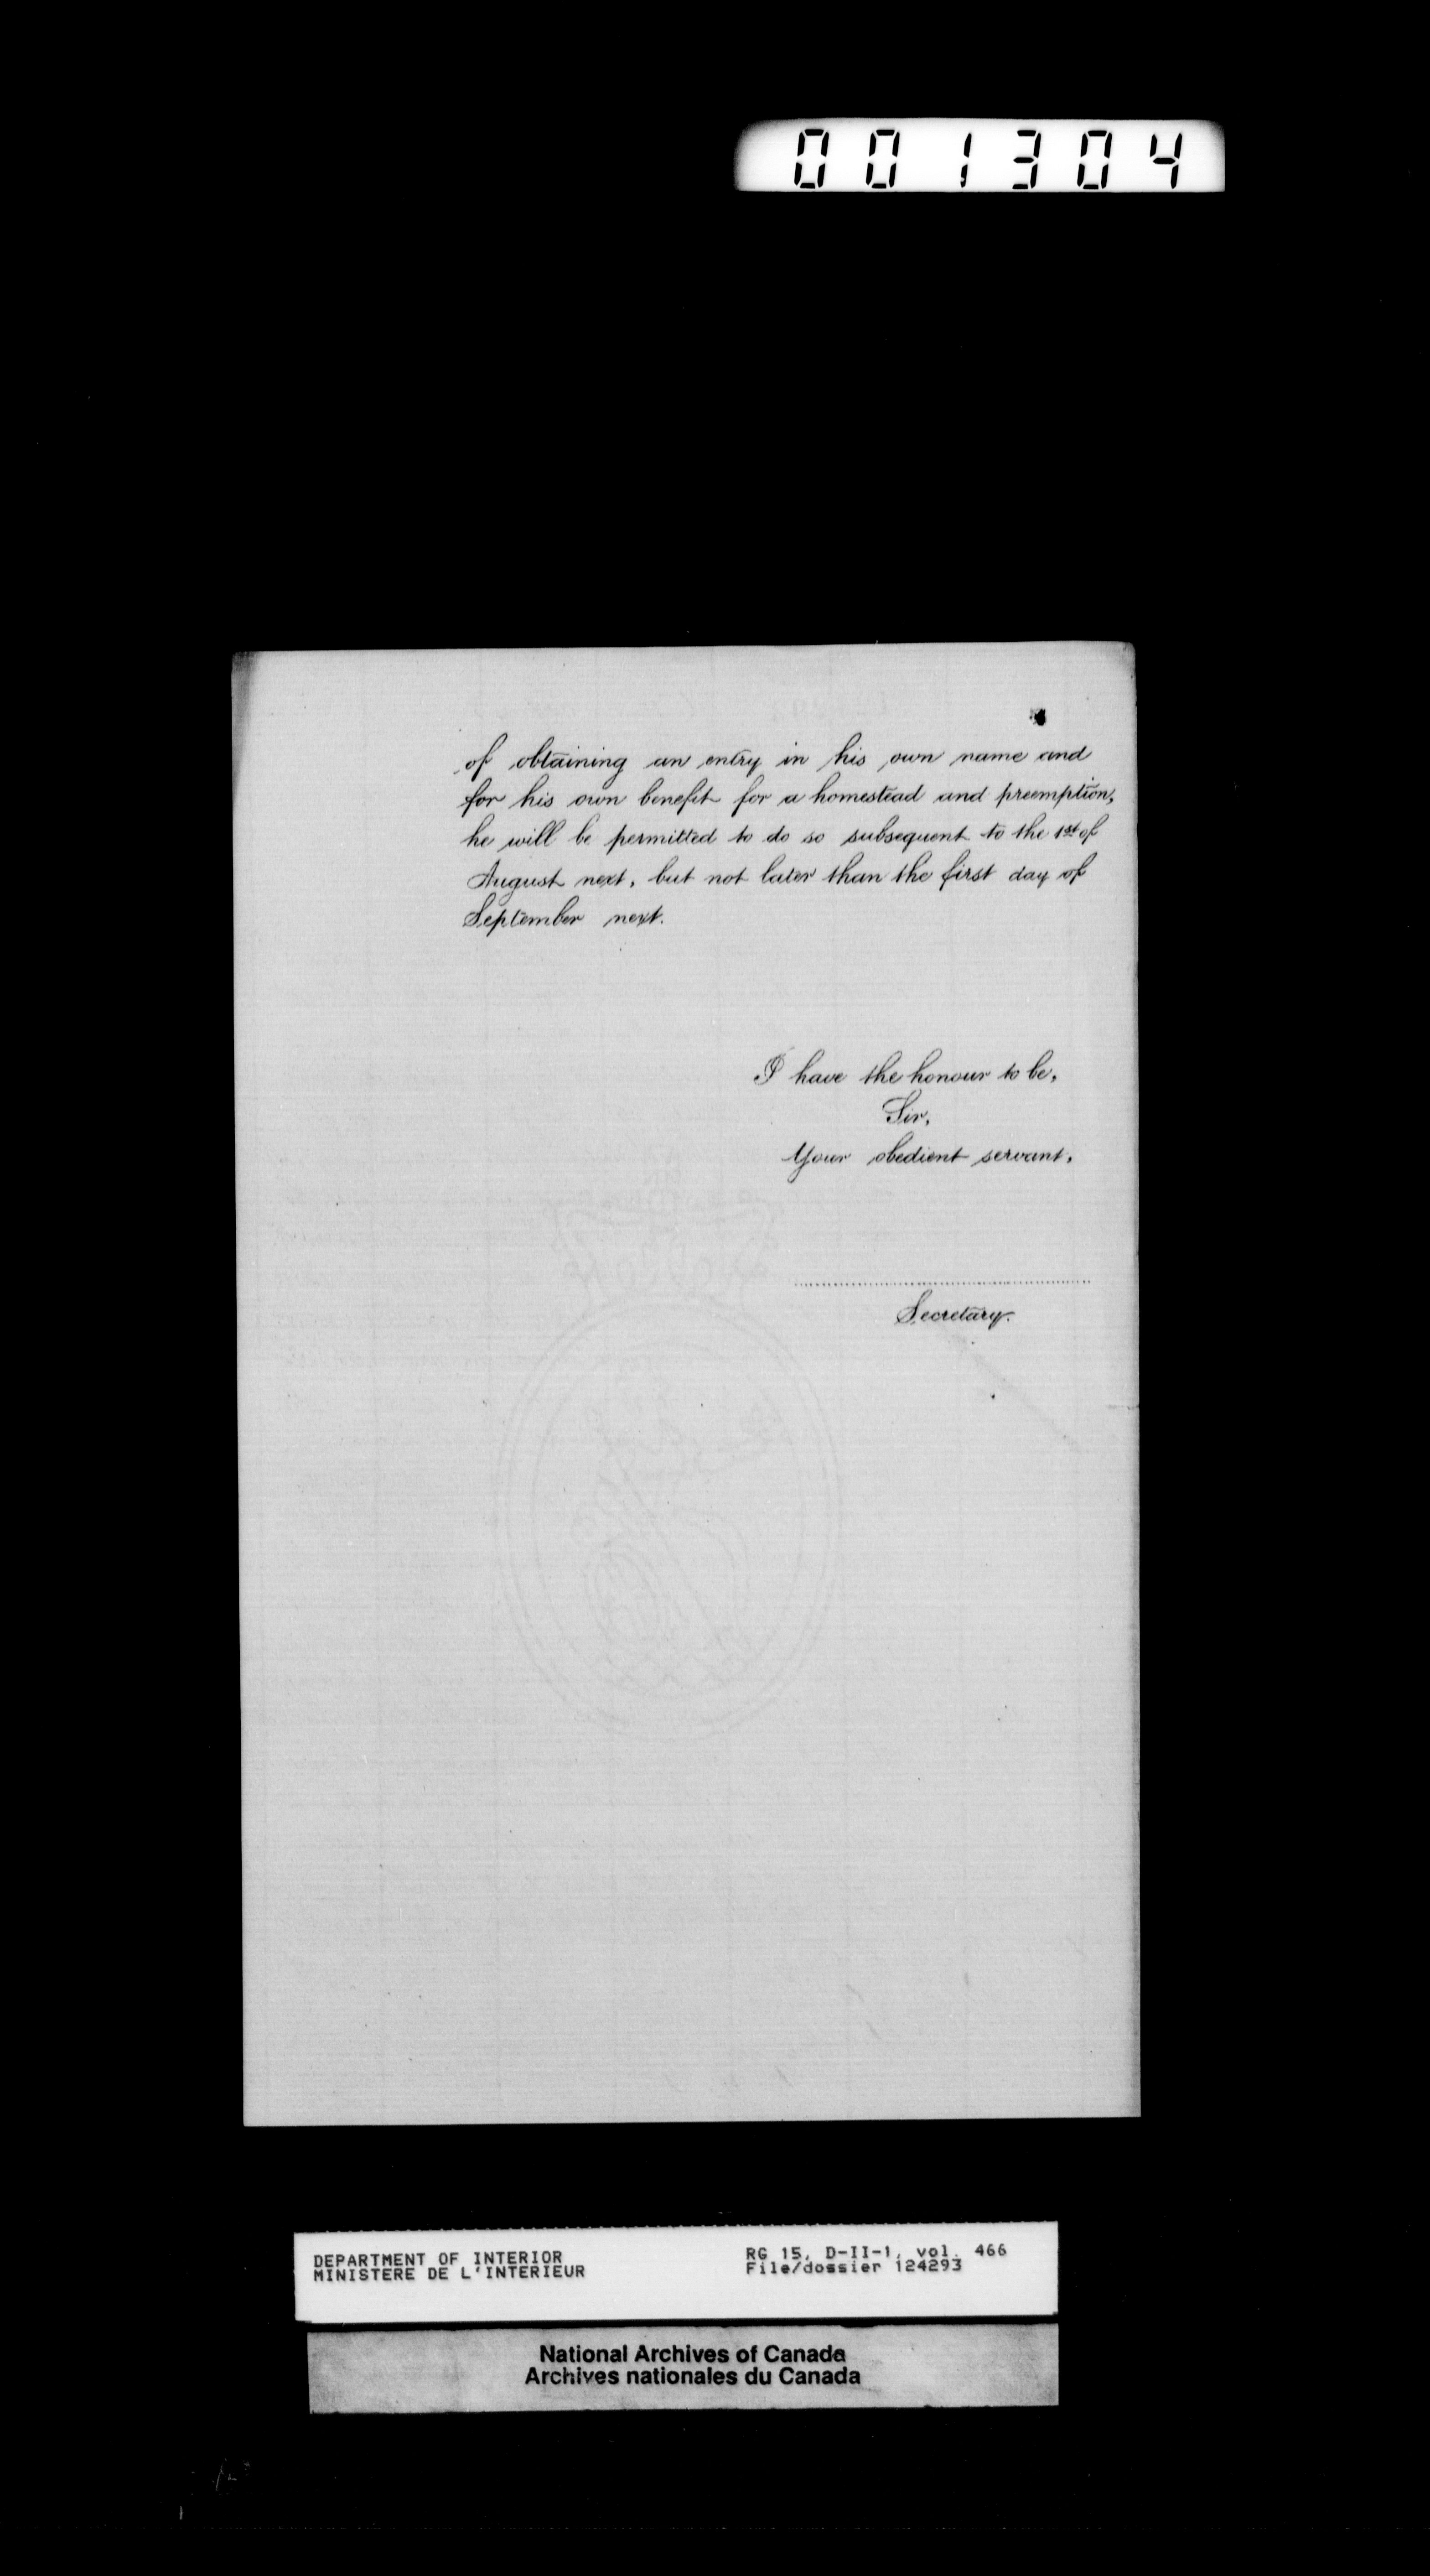 001304
of obtaining an entry in his own name and
for his own benefit for a homestead and preemption,
he will be permitted to do so subsequent to the 1st of
August next, but not later than the first day of
September next.
I have the honour to be,
Sir,
Your obedient servant,
Secretary.
DEPARTMENT OF INTERIOR
MINISTERE DE L'INTERIEUR
RG 15, D-II-1, vol. 466
File/dossier 124293
National Archives of Canada
Archives nationales du Canada